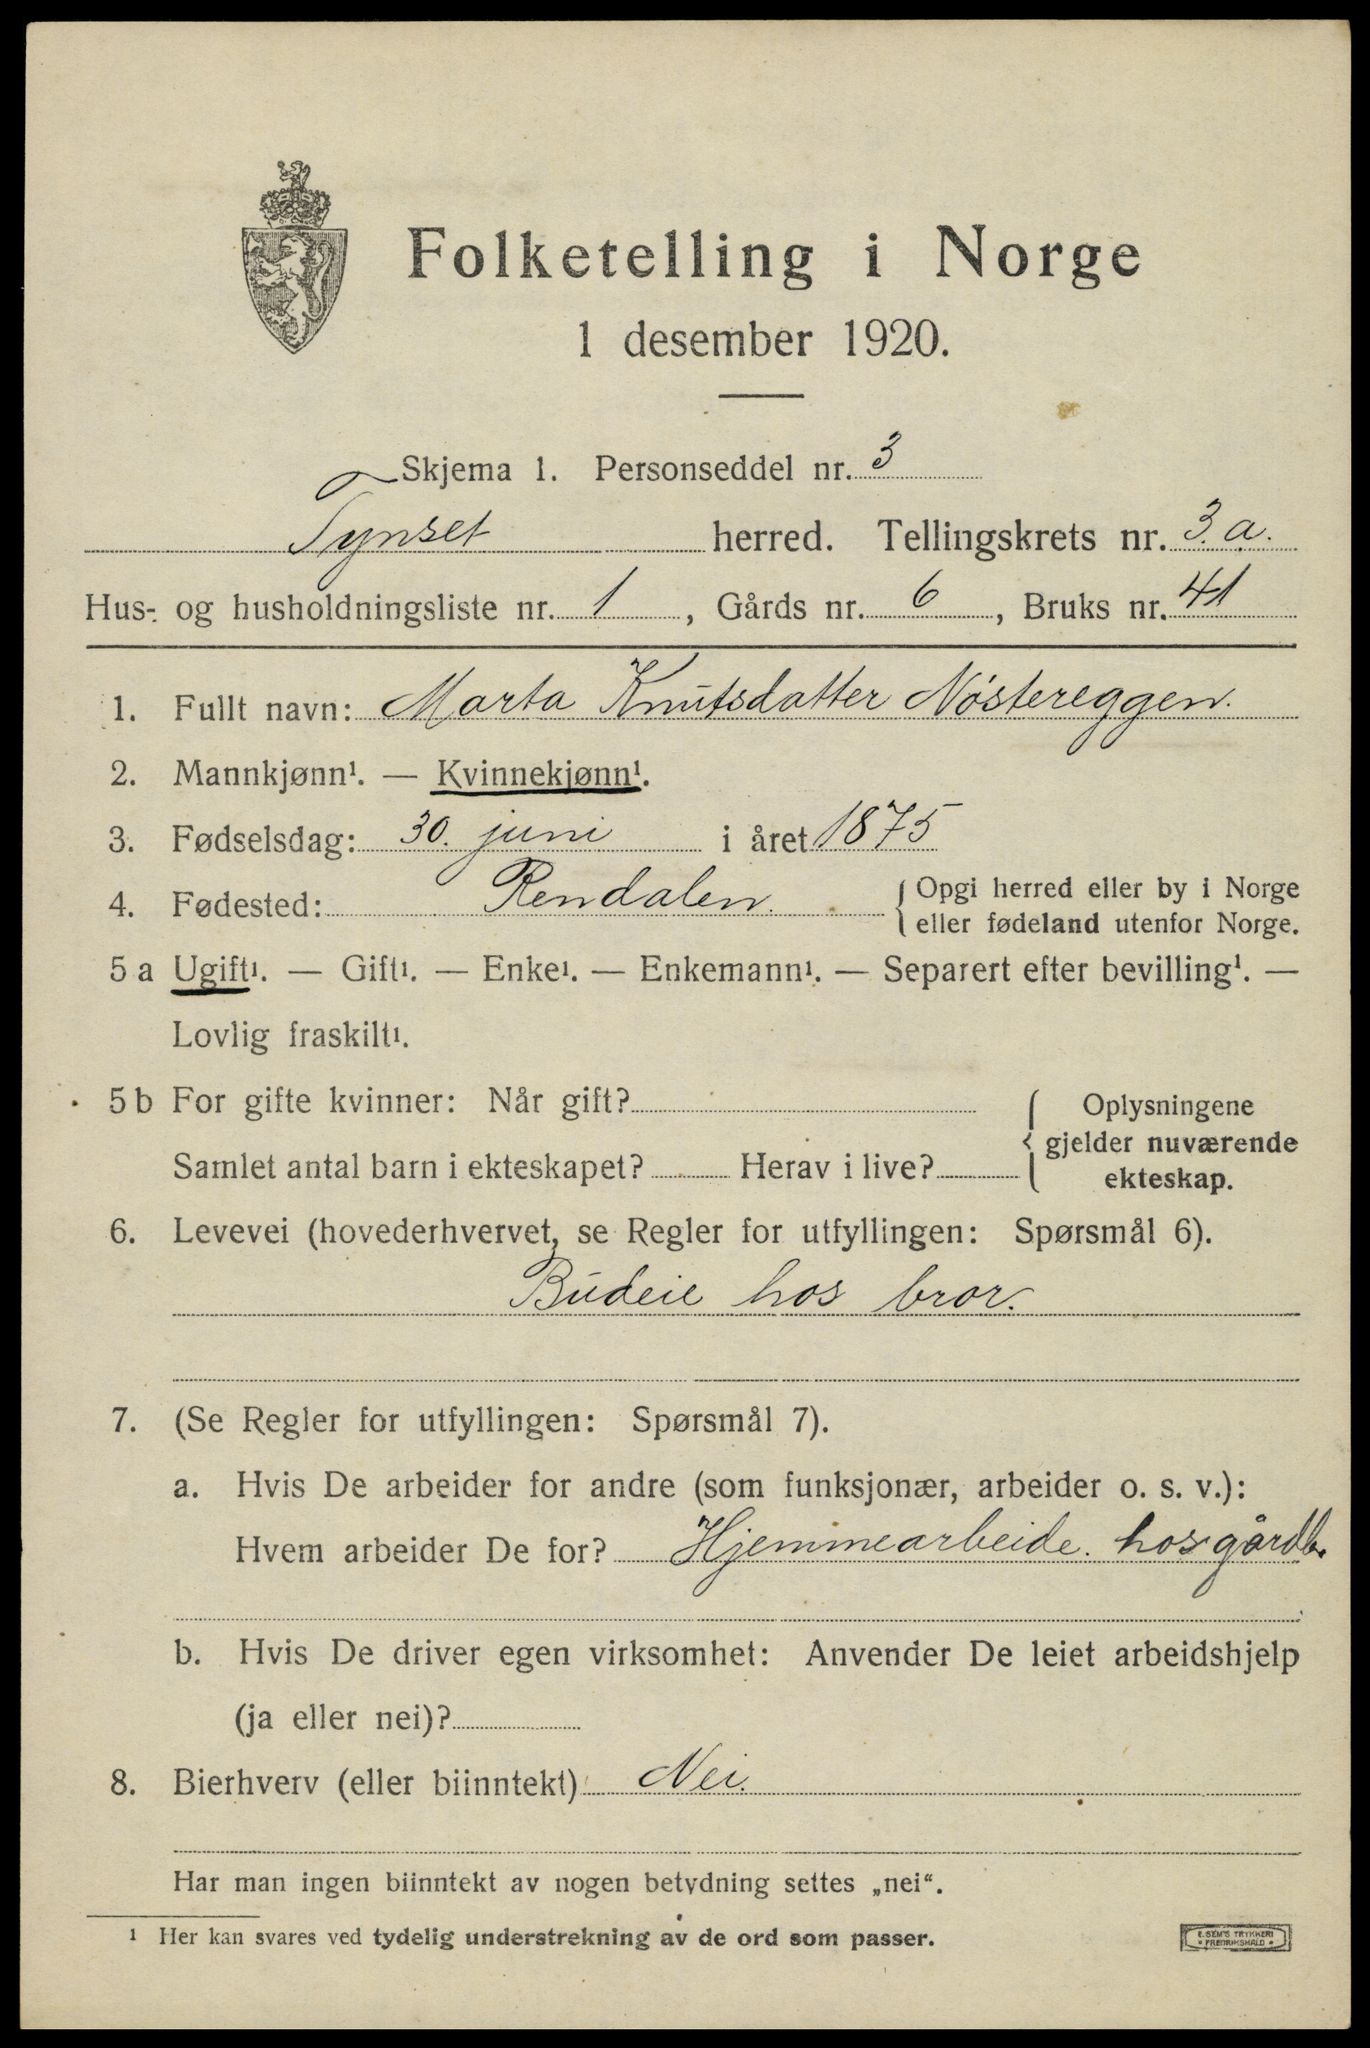 Folketelling i Norge
1 desember 1920.
Skjema 1. Personseddel nr. 3
Tynset herred. Tellingskrets nr. 3.a.
Hus- og husholdningsliste nr. 1, Gårds nr. 6, Bruks nr. 41
1. Fullt navn: Marta Knutsdatter Nøstereggen.
2. Mannkjønn¹. — Kvinnekjønn¹.
3. Fødselsdag: 30. juni i året 1875
4. Fødested: Rendalen. { Opgi herred eller by i Norge
eller fødeland utenfor Norge.
5 a Ugift¹. — Gift¹. — Enke¹. — Enkemann¹. — Separert efter bevilling¹. —
Lovlig fraskilt¹.
5 b For gifte kvinner: Når gift? { Oplysningene
gjelder nuværende
Samlet antal barn i ekteskapet? Herav i live? ekteskap.
6. Levevei (hovederhvervet, se Regler for utfyllingen: Spørsmål 6).
Budeie hos bror.
7. (Se Regler for utfyllingen: Spørsmål 7).
a. Hvis De arbeider for andre (som funksjonær, arbeider o. s. v.):
Hvem arbeider De for? Hjemmearbeide. hos gårdbr
b. Hvis De driver egen virksomhet: Anvender De leiet arbeidshjelp
(ja eller nei)?
8. Bierhverv (eller biinntekt) Nei.
Har man ingen biinntekt av nogen betydning settes „nei“.
¹ Her kan svares ved tydelig understrekning av de ord som passer.
E. SEM'S TRYKKERI
• FREDRIKSHALD •